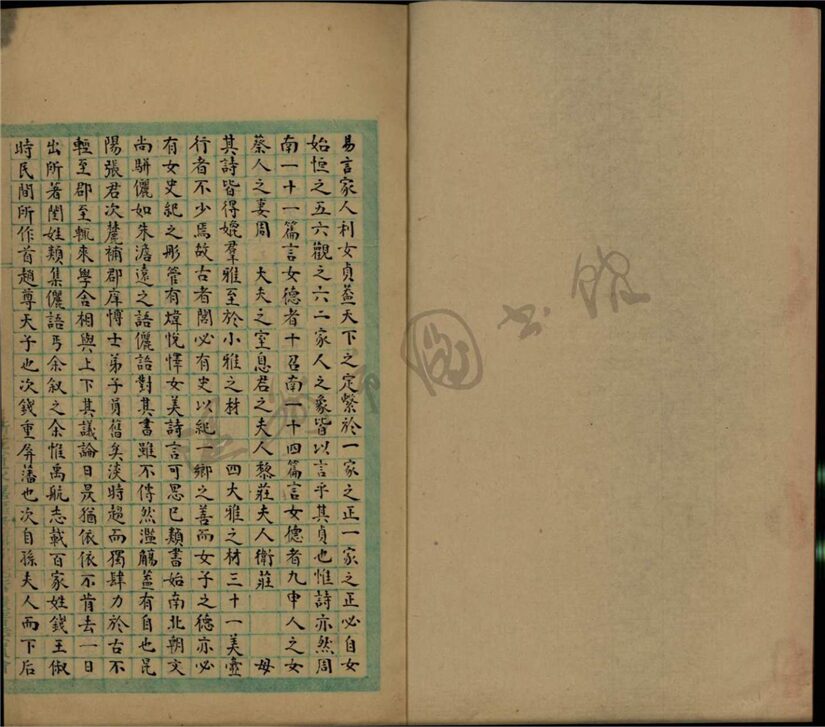 易言家人利女貞蓋天下之定繫於一家之正一家之正必自女
始恒之五六觀之六二家人之象皆以言乎其貞也惟詩亦然周
南一十一篇言女德者十召南一十四篇言女德者九申人之女
蔡人之妻周 大夫之室息君之夫人黎莊夫人衛莊 母
其詩皆得媲羣雅至於小雅之材 四大雅之材三十一美壼
行者不少焉故古者閭必有史以紀一鄉之善而女子之德亦必
有女史紀之彤管有煒悅懌女美詩言可思已類書始南北朝文
尚駢儷如朱澹遠之語儷語對其書雖不傳然濫觴蓋有自也昆
陽張君次麓補郡庠博士弟子員舊矣淡時趨而獨肆力於古不
輕至郡至輒來學舍相與上下其議論日昃猶依依不肯去一日
出所著閨姓類集儷語丐余叙之余惟禹航志載百家姓錢王俶
時民間所作首趙尊天子也次錢重屏藩也次自孫夫人而下后